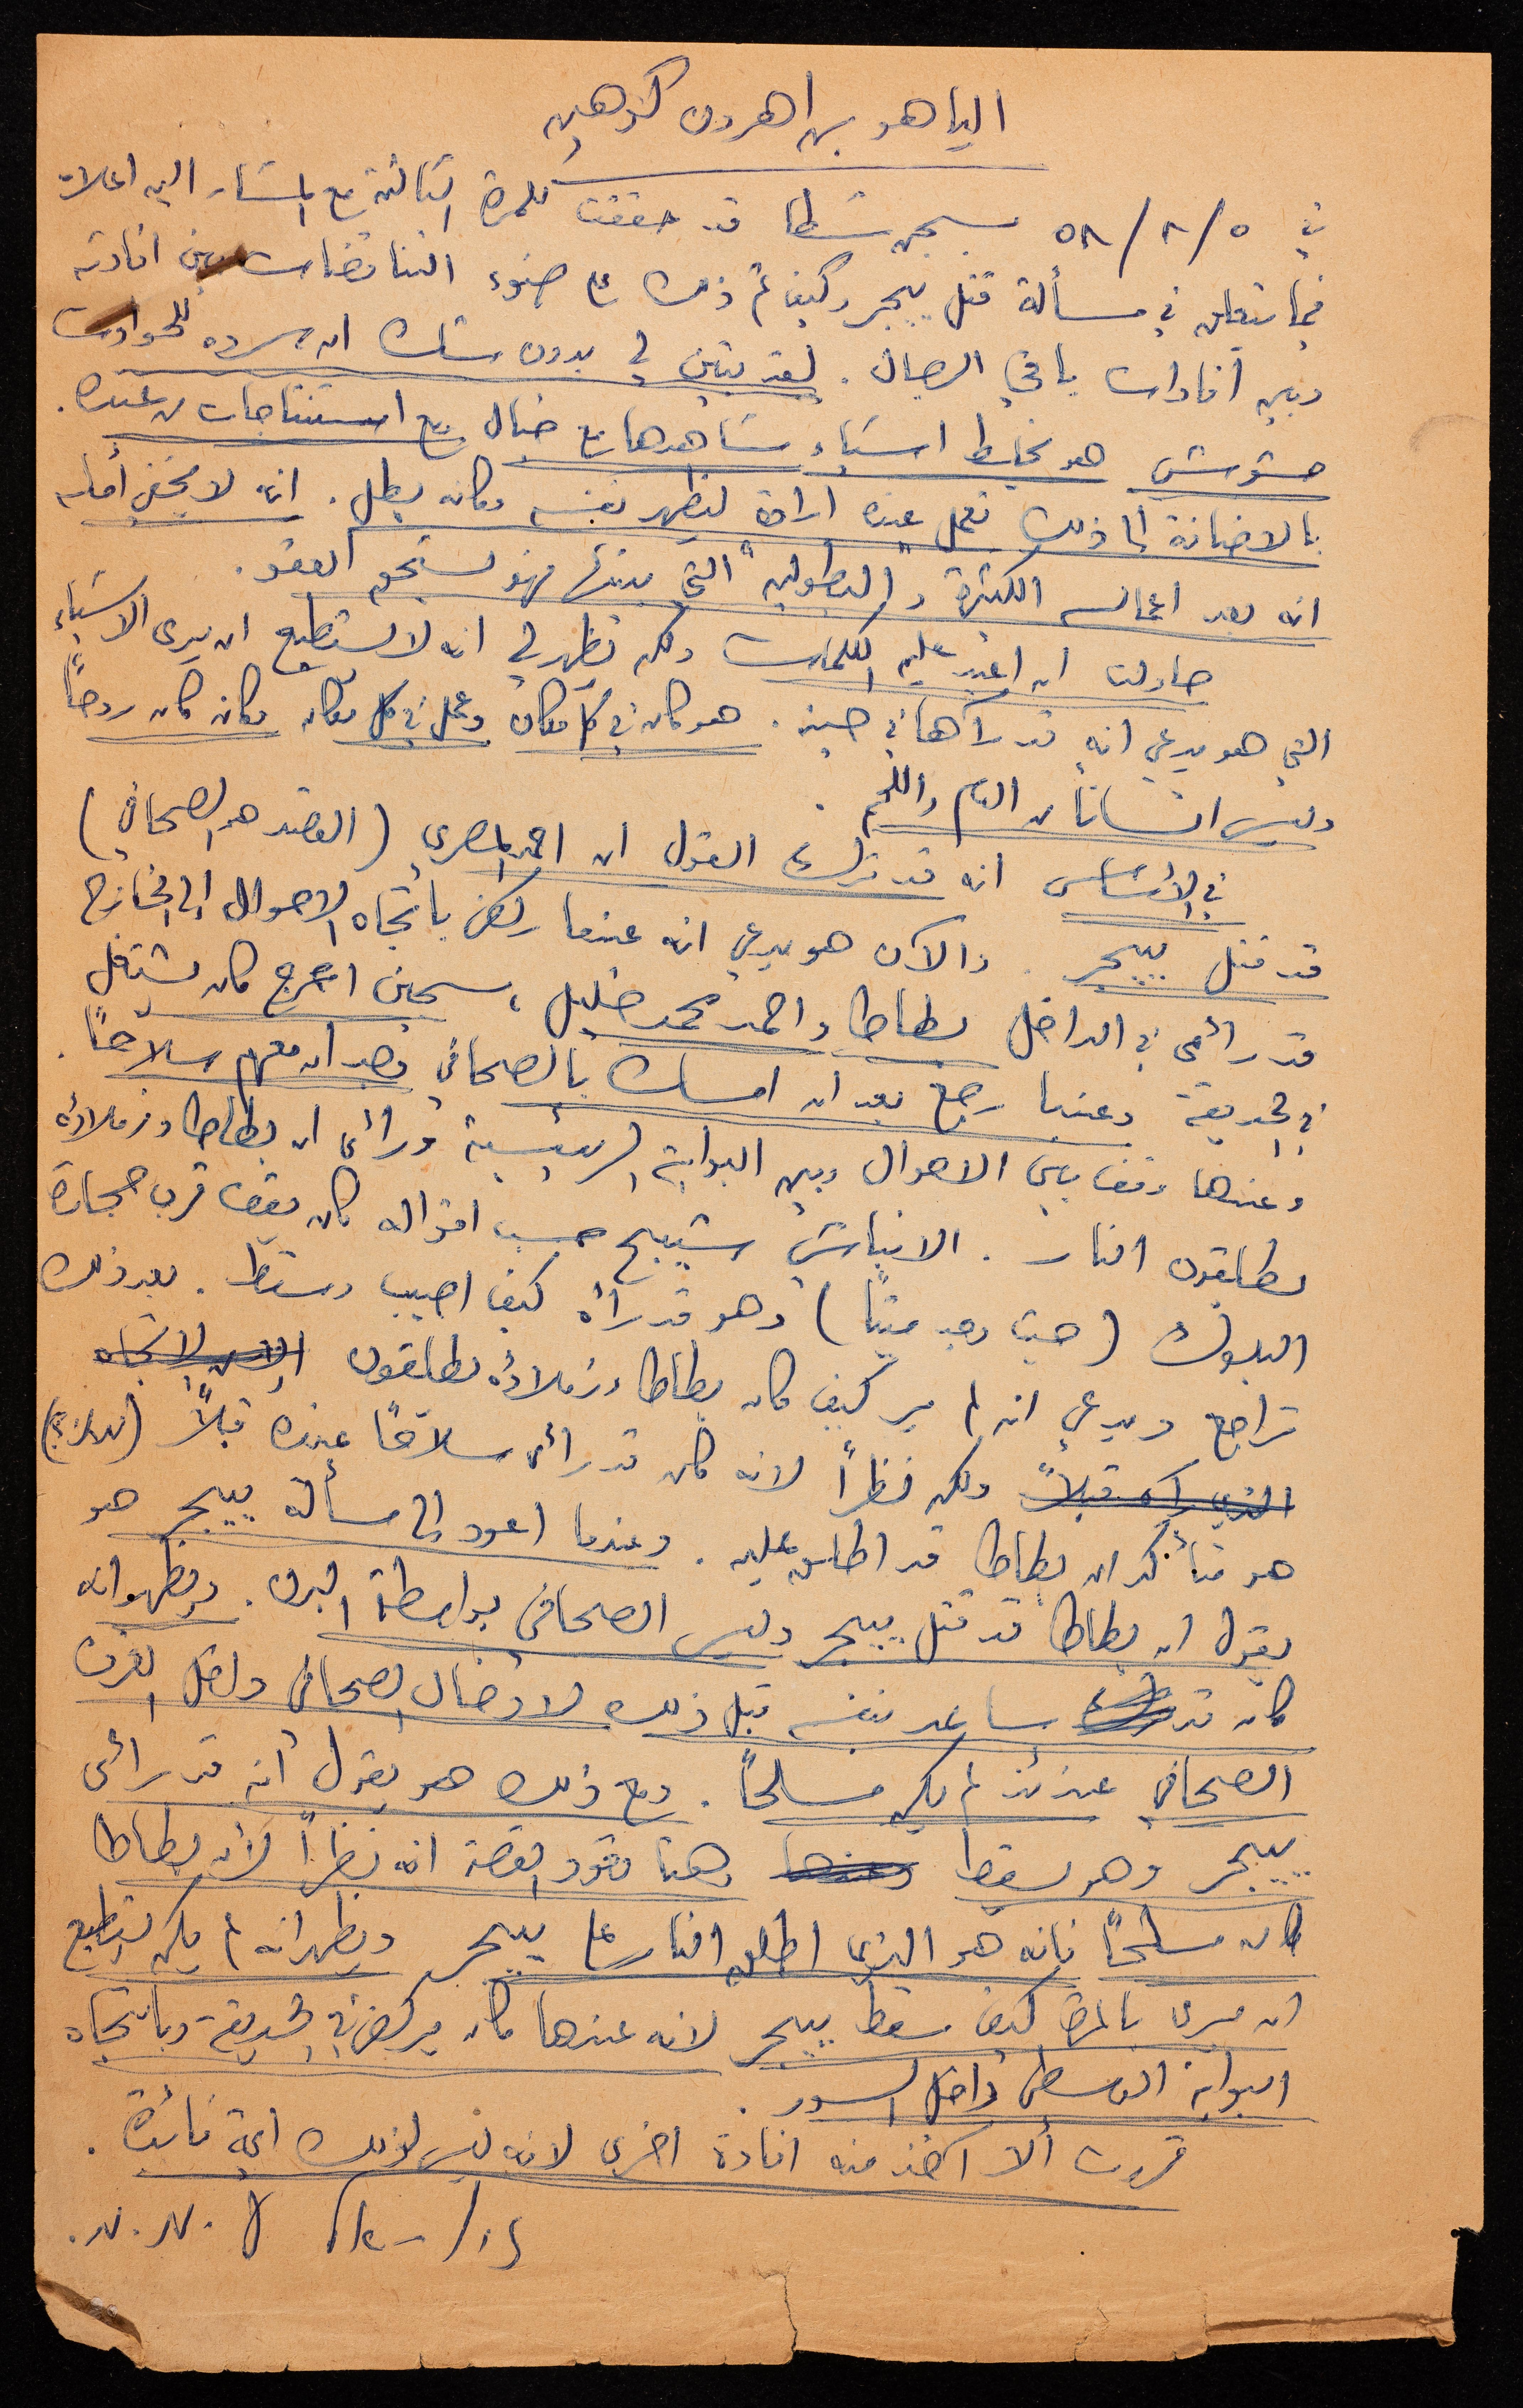 الياهو بن اهرون كوهين
في ٥٨/٨/٥ بسجن شطا قد حققت للمرة الثالثة مع المشار اليه اعلاه
فيما يتعلق في مسألة قتل ييجر وكيف تم ذلك على ضوء التناقضات بين افادته
وبين افادات باقي الرجال. لقد تبين لي بدون شك ان سرده للحوادث
مشوش هو يخلط اشياء شاهدها مع خيال ومع استنتاجات من عنده.
بالاضافة الى ذلك تعمل عنده ارادة ليظهر نفسه وكأنه بطل. انه لا يخفي أمله
انه بعد اعماله الكثيرة و"البطولية" التي بينها فهو يستحق العفو.
حاولت ان اعيد عليه الكلمات ولكن تظهر لي انه لا يستطيع ان يرى الاشياء
التي هو يدعي انه قد رآها في حينه. هو كان في كل مكان وعمل في كل مكان وكأن كان روحاً
وليس انساناً من الدم واللحم.
في الأساس انه قد ترك القول ان احمد المصري (القصد هو الصحافي)
قد قتل ييجر. والآن هو يدعي انه عندما ركض باتجاه الاحوال الى الخارج
قد رأى في الداخل بطاطا واحمد محمد خليل، سجين اعرج كان يشتغل
في الحديقة وعندما رجع بعد ان امسك بالصحافي وجد ان معهم سلاحاً.
وعندها وقف بين الاحوال وبين البوابة الرئيسية ورأى ان بطاطا وزملاءه
يطلقون النار. الانباشي شبيح حسب اقواله كان يقف قرب حجارة
البلوك (حيث وجد ميتاً) وهو قد رآه كيف اصيب وسقط. بعد ذلك
تراجع ويدعي انه لم ير كيف كان بطاطا وزملاؤه يطلقون
الذي رآه قبلاً ولكن نظراً لانه كان قد رأى سلاحاً عنده قبلاً
هو متأكد ان بطاطا قد اطلق عليه. وعندما اعود الى مسألة ييجر هو
يقول ان بطاطا قد قتل ييجر وليس الصحافي بواسطة البرن. ويظهر انه
كان قد ساعد نفسه قبل ذلك لادخال الصحافي داخل الغرف
الصحافي عندئذ لم يكن مسلحاً. ومع ذلك هو يقول انه قد رأى
ييجر وهو يسقط وعندها وهنا تعود القصة انه نظراً لأن بطاطا
كان مسلحاً فانه هو الذي اطلق النار على ييجر ويظهر انه لم يكن يستطيع
ان يرى بالمرة كيف سقط ييجر لانه عندها كان يركض في الحديقة وباتجاه
البوابة الوسطى داخل السور.
قررت ألا آخذ منه افادة اخرى لانه ليس لذلك اية فائدة.